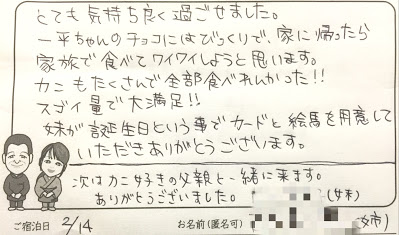 とても気持ち良く過ごせました。
一平ちゃんのチョコにはびっくりで、家に帰ったら
家族で食べてワイワイしようと思います。
カニもたくさんで全部食べれんかった!!
スゴイ量で大満足!!
妹が誕生日という事でカードと絵馬を用意して
いただきありがとうございます。
次はカニ好きの父親と一緒に来ます。
ありがとうございました。
(妹)
ご宿泊日 2/14
お名前(匿名可)
姉)